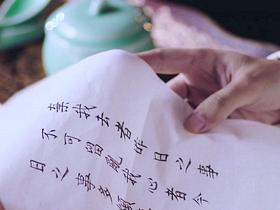 棄我去者昨日之事
不可留亂我心者今
日之事多煩